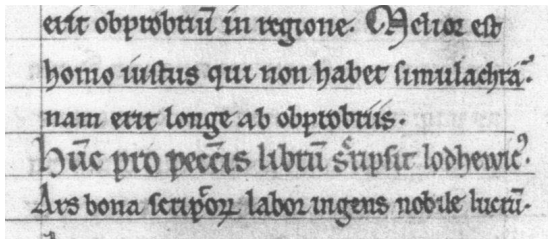 erit obprobriū in regione. Melior est
homo iustus qui non habet simulachra.
nam erit longe ab obprobriis.
Hūc pro peccīs librū scͥpsit lodhewicꝰ.
Ars bona scriptoꝝ labor ingens nobile lucrū.